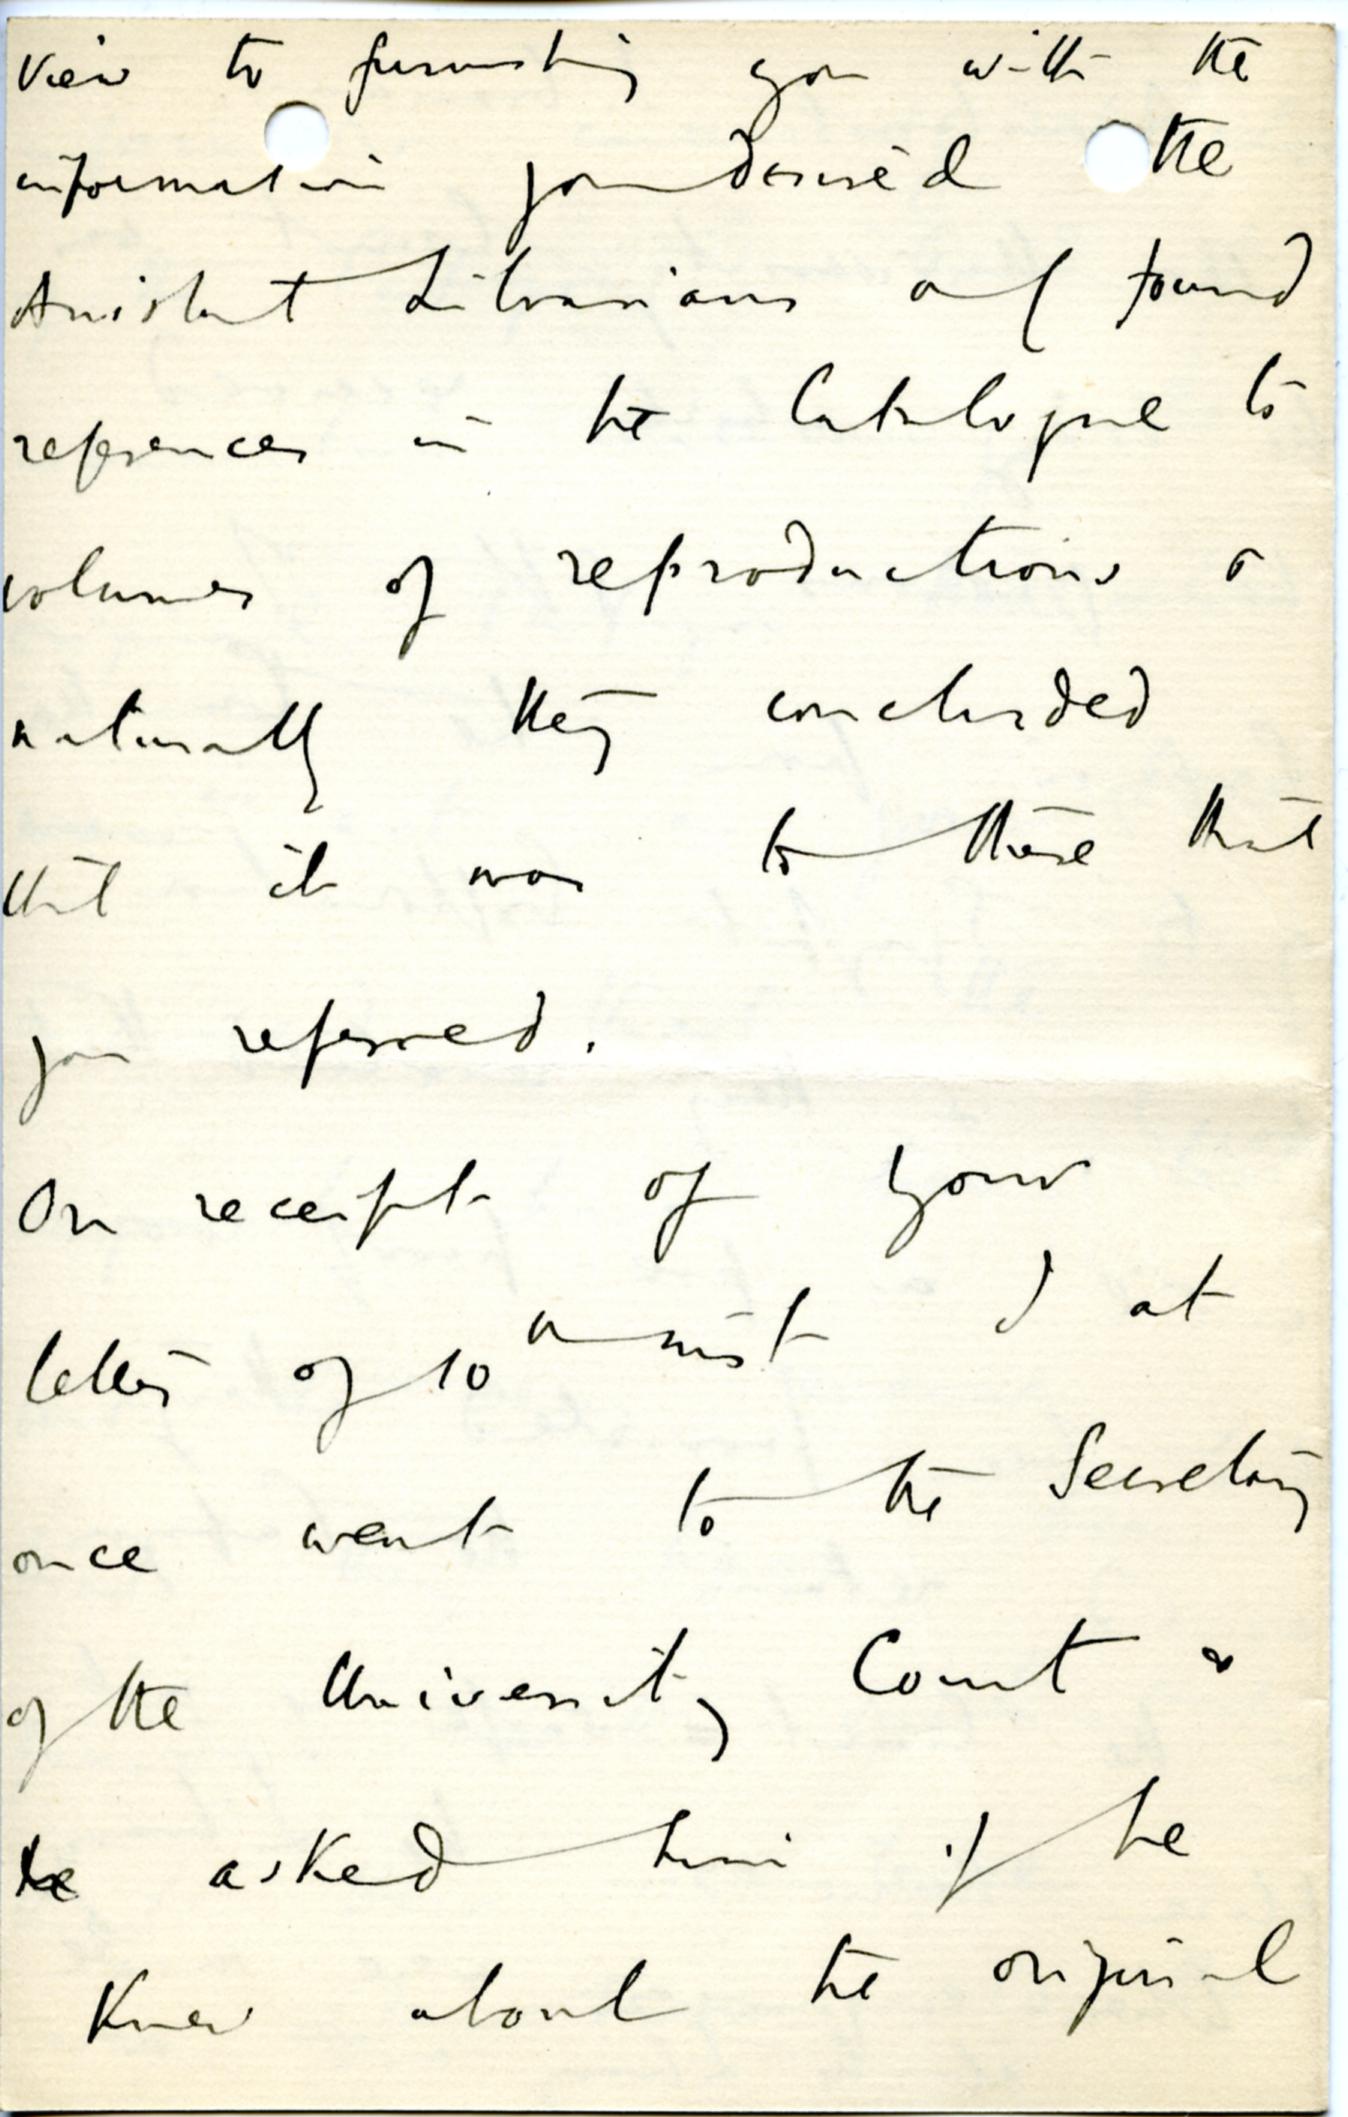 view to furnishing you with the
information you desired the
Assistant Librarians all found
references in the Catalogue to
volumes of reproductions &
naturally they concluded
that it was to these that
you referred.
On receipt of your
letter of 10th inst I at
once went to the Secretary
of the University Court &
asked him if he
knew about the original